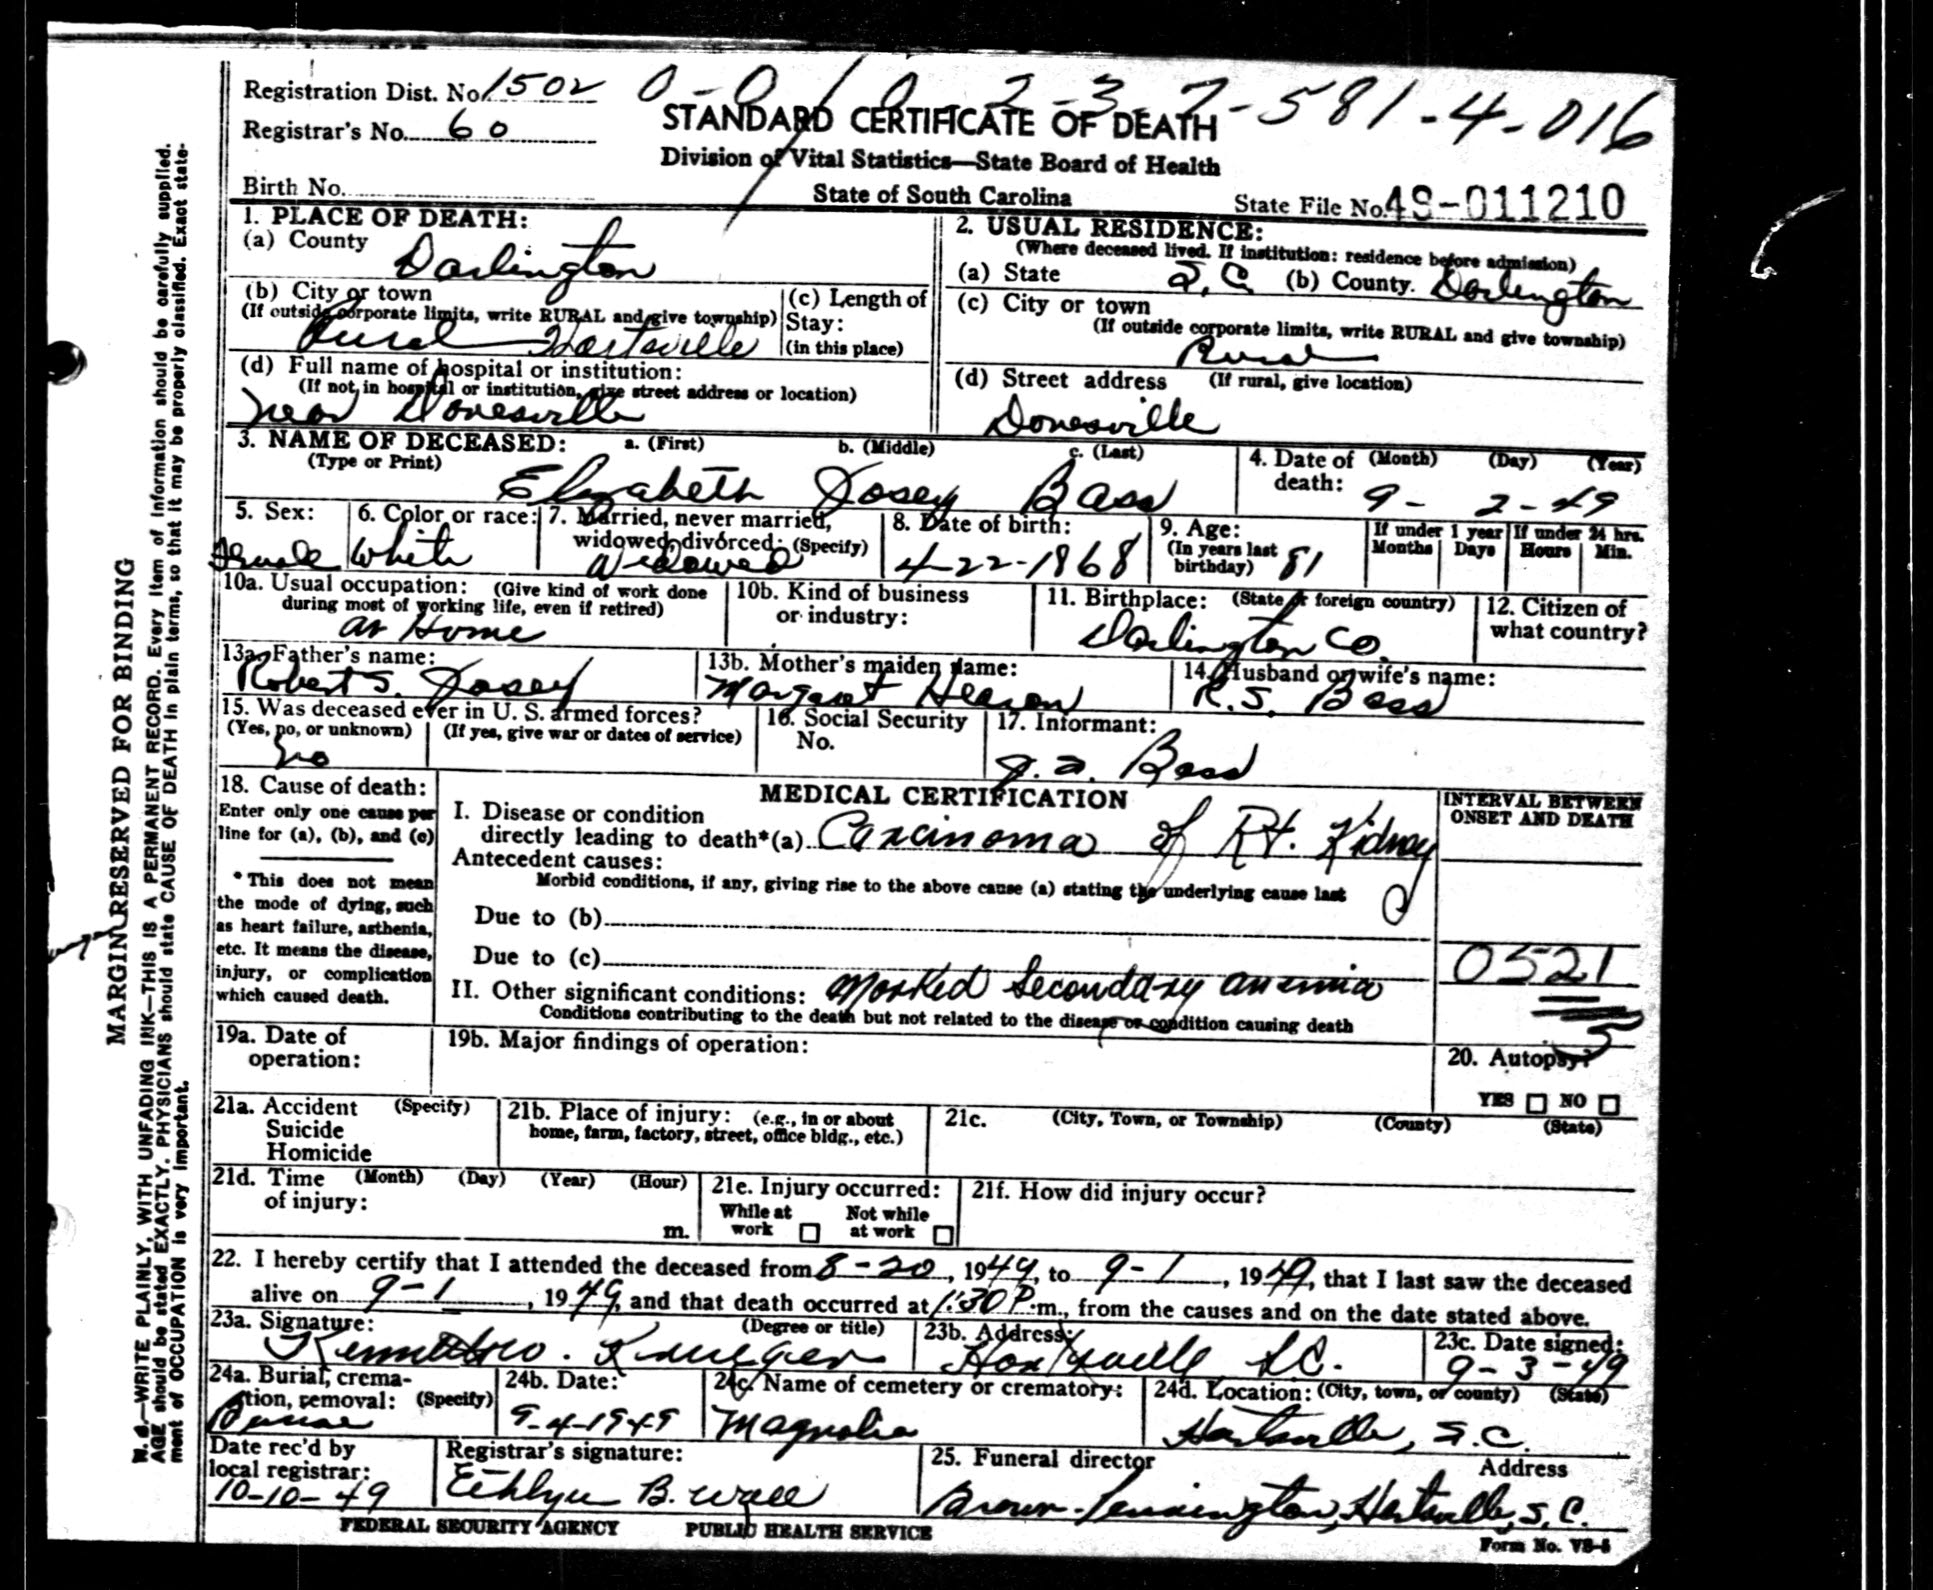 Registration Dist. No. 1502 0-0 10 2-3-7-581-4-016
Registrar's No. 60 STANDARD CERTIFICATE OF DEATH
Division of Vital Statistics—State Board of Health
Birth No. State of South Carolina State File No. 49-011210
1. PLACE OF DEATH:
(a) County Darlington
(b) City or town
(If outside corporate limits, write RURAL and give township)
Rural Hartsville
(c) Length of
Stay:
(in this place)
(d) Full name of hospital or institution:
(If not in hospital or institution, give street address or location)
near Dovesville
2. USUAL RESIDENCE:
(Where deceased lived. If institution: residence before admission)
(a) State S.C. (b) County. Darlington
(c) City or town
(If outside corporate limits, write RURAL and give township)
Rural
(d) Street address (If rural, give location)
Dovesville
3. NAME OF DECEASED: a. (First) b. (Middle) c. (Last)
(Type or Print)
Elizabeth Josey Bass
4. Date of (Month) (Day) (Year)
death: 9- 2-49
5. Sex:
Female
6. Color or race:
White
7. Married, never married,
widowed, divorced: (Specify)
Widowed
8. Date of birth:
4-22-1868
9. Age:
(In years last
birthday) 81
If under 1 year
Months Days
If under 24 hrs.
Hours Min.
10a. Usual occupation: (Give kind of work done
during most of working life, even if retired)
at Home
10b. Kind of business
or industry:
11. Birthplace: (State or foreign country)
Darlington Co.
12. Citizen of
what country?
13a. Father's name:
Robert S. Josey
13b. Mother's maiden name:
Margaret Hearon
14. Husband or wife's name:
R.S. Bass
15. Was deceased ever in U. S. armed forces?
(Yes, no, or unknown) (If yes, give war or dates of service)
no
16. Social Security
No.
17. Informant:
Bass
18. Cause of death:
Enter only one cause per
line for (a), (b), and (c)
* This does not mean
the mode of dying, such
as heart failure, asthenia,
etc. It means the disease,
injury, or complication
which caused death.
MEDICAL CERTIFICATION
I. Disease or condition
directly leading to death*(a) Carcinoma of Rt. Kidney
Antecedent causes:
Morbid conditions, if any, giving rise to the above cause (a) stating the underlying cause last
Due to (b)
Due to (c)
II. Other significant conditions: Marked Secondary anemia
Conditions contributing to the death but not related to the disease or condition causing death
INTERVAL BETWEEN
ONSET AND DEATH
0521
5
19a. Date of
operation:
19b. Major findings of operation:
20. Autopsy?
YES NO
21a. Accident (Specify)
Suicide
Homicide
21b. Place of injury: (e.g., in or about
home, farm, factory, street, office bldg., etc.)
21c. (City, Town, or Township) (County) (State)
21d. Time (Month) (Day) (Year) (Hour)
of injury:
m.
21e. Injury occurred:
While at Not while
work at work
21f. How did injury occur?
22. I hereby certify that I attended the deceased from 8-20, 1949, to 9-1, 1949, that I last saw the deceased
alive on 9-1, 1949, and that death occurred at 1:30 P.m., from the causes and on the date stated above.
23a. Signature: (Degree or title)
Kenneth W. Krueger
23b. Address:
Hartsville S.C.
23c. Date signed:
9-3-49
24a. Burial, crema-
tion, removal: (Specify)
Burial
24b. Date:
9-4-1949
24c. Name of cemetery or crematory:
Magnolia
24d. Location: (City, town, or county) (State)
Hartsville, S.C.
Date rec'd by
local registrar:
10-10-49
Registrar's signature:
B. Wall
25. Funeral director Address
Brown-Pennington, Hartsville, S.C.
FEDERAL SECURITY AGENCY PUBLIC HEALTH SERVICE
Form No. VS-5
MARGIN RESERVED FOR BINDING
N. B.—WRITE PLAINLY, WITH UNFADING INK—THIS IS A PERMANENT RECORD. Every item of information should be carefully supplied.
AGE should be stated EXACTLY. PHYSICIANS should state CAUSE OF DEATH in plain terms, so that it may be properly classified. Exact state-
ment of OCCUPATION is very important.